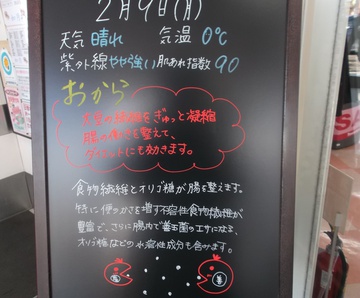 2月9日(月)
天気 晴れ 気温 0℃
紫外線 やや強い 肌あれ指数 90
おから
大豆の繊維をぎゅっと凝縮
腸の働きを整えて、
ダイエットにも効きます。
食物繊維とオリゴ糖が腸を整えます。
特に便のかさを増す不溶性食物繊維が
豊富で、さらに腸内で善玉菌のエサになる、
オリゴ糖などの水溶性成分も含みます。